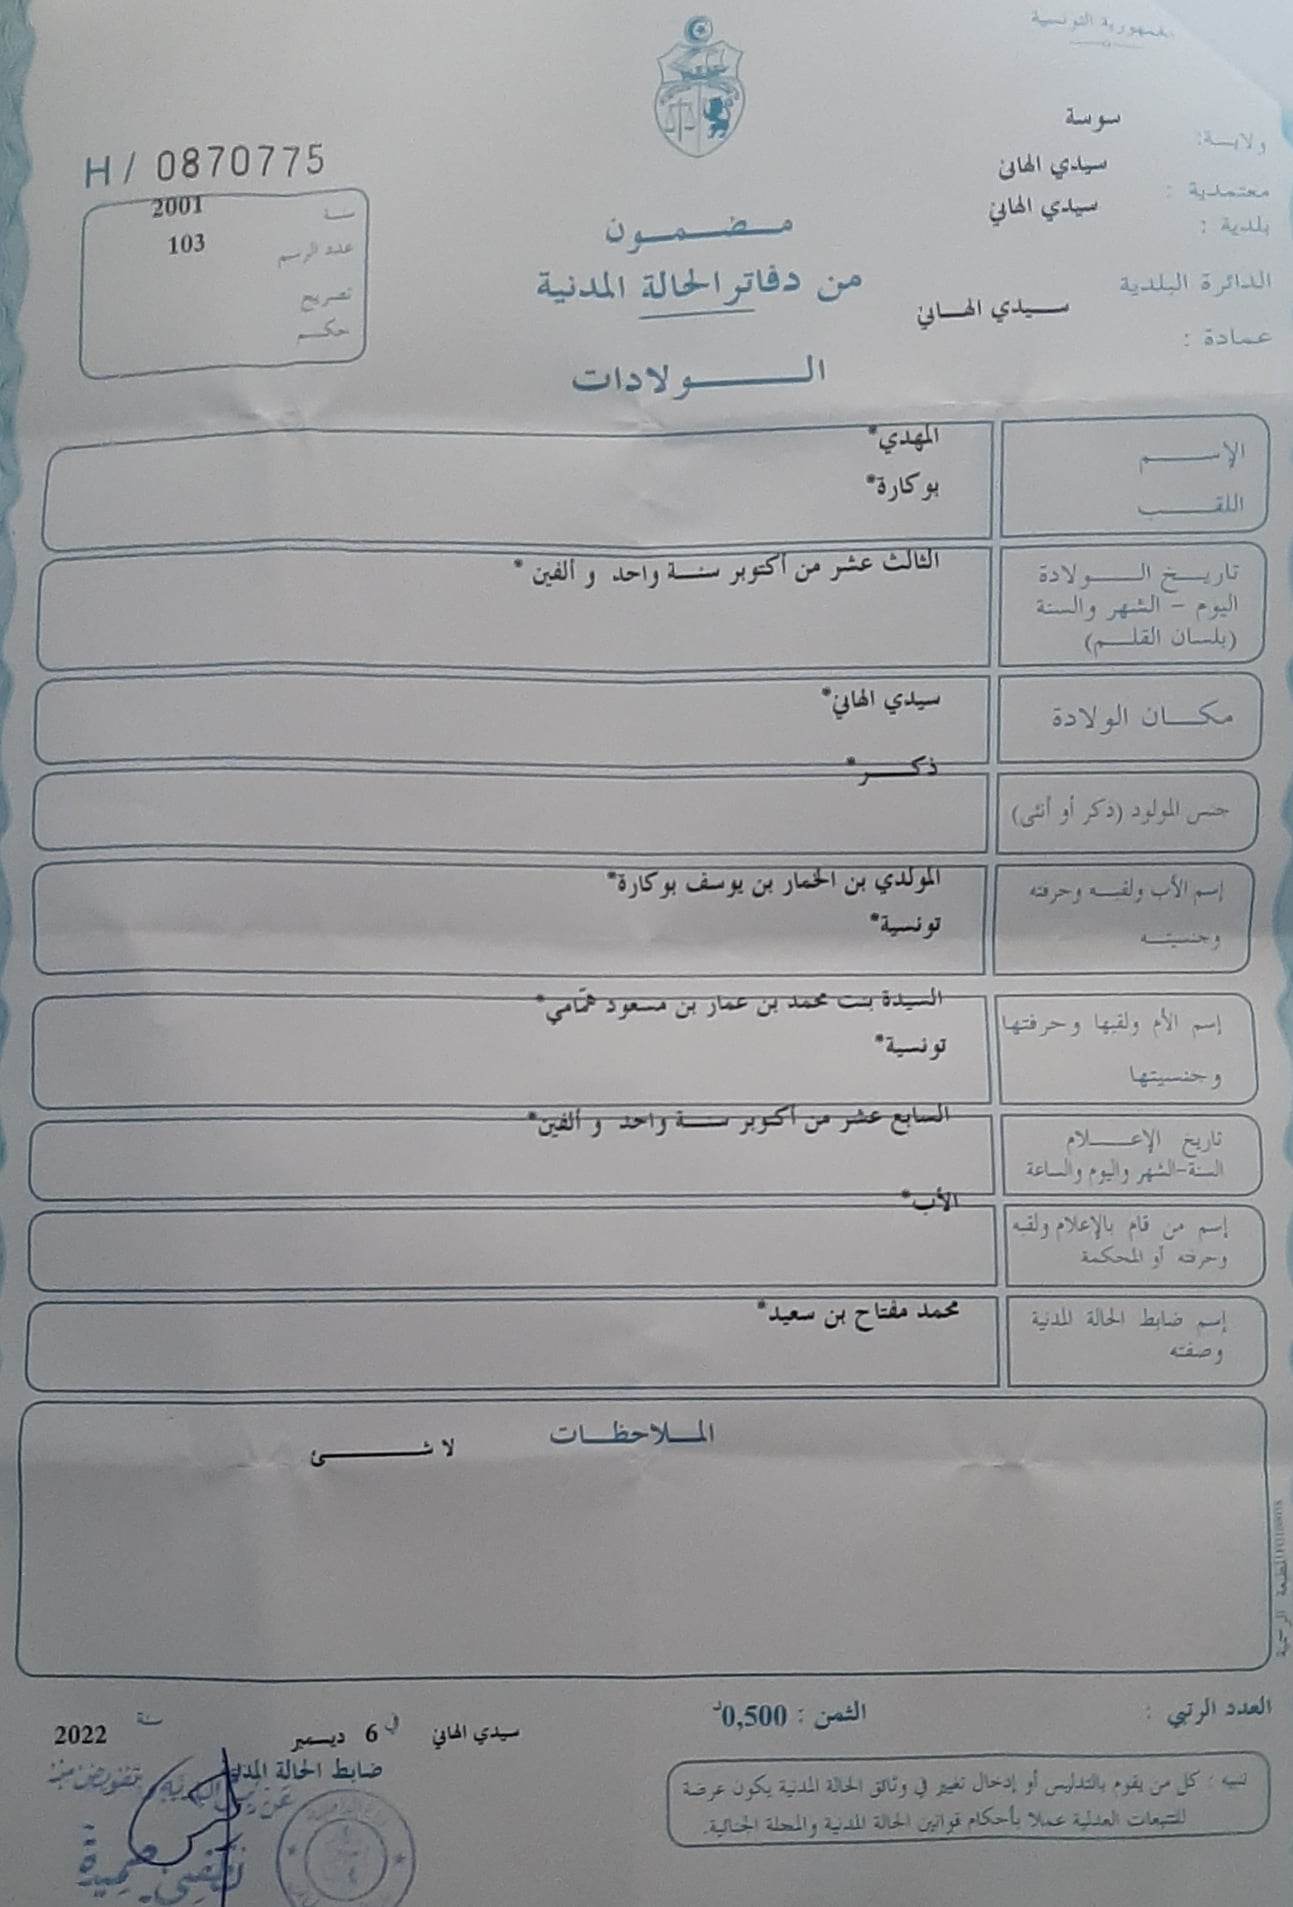 الجمهورية التونسية
ولايـة: سوسة
معتمدية : سيدي الهاني
بلدية : سيدي الهاني
الدائرة البلدية
عمادة : سـيدي الهـاني
H / 0870775
سنة 2001
عدد الرسم 103
تصريح
حكـم
مـضـمـون
من دفاتر الحالة المدنية
الـــولادات
الإســـم المهدي*
اللقـــب بوكارة*
تاريـخ الـــولادة الثالث عشر من أكتوبر سنـة واحد و ألفين *
اليوم - الشهر والسنة
(بلسان القلـم)
مكـــان الولادة سيدي الهاني*
جنس المولود (ذكر أو أنثى) ذكـــر*
إسم الأب ولقبـه وحرفته المولدي بن الخمار بن يوسف بوكارة*
وجنسيتـه تونسية*
إسم الأم ولقبها وحرفتها السيدة بنت محمد بن عمار بن مسعود همّامي*
وجنسيتها تونسية*
تاريخ الإعـــلام السابع عشر من أكتوبر سنـة واحد و ألفين*
السنة-الشهر واليوم والساعة
إسم من قام بالإعلام ولقبه الأب*
وحرفته أو المحكمة
إسم ضابط الحالة المدنية محمد مفتاح بن سعيد*
وصفته
المـلاحظـات
لا شــــئ
العدد الرتبي :
الثمن : 0,500د
سيدي الهاني في 6 ديسمبر سنة 2022
ضابط الحالة المدنية
تنبيه : كل من يقوم بالتدليس أو إدخال تغيير في وثائق الحالة المدنية يكون عرضة
للتتبعات العدلية عملا بأحكام قوانين الحالة المدنية والمجلة الجنائية.